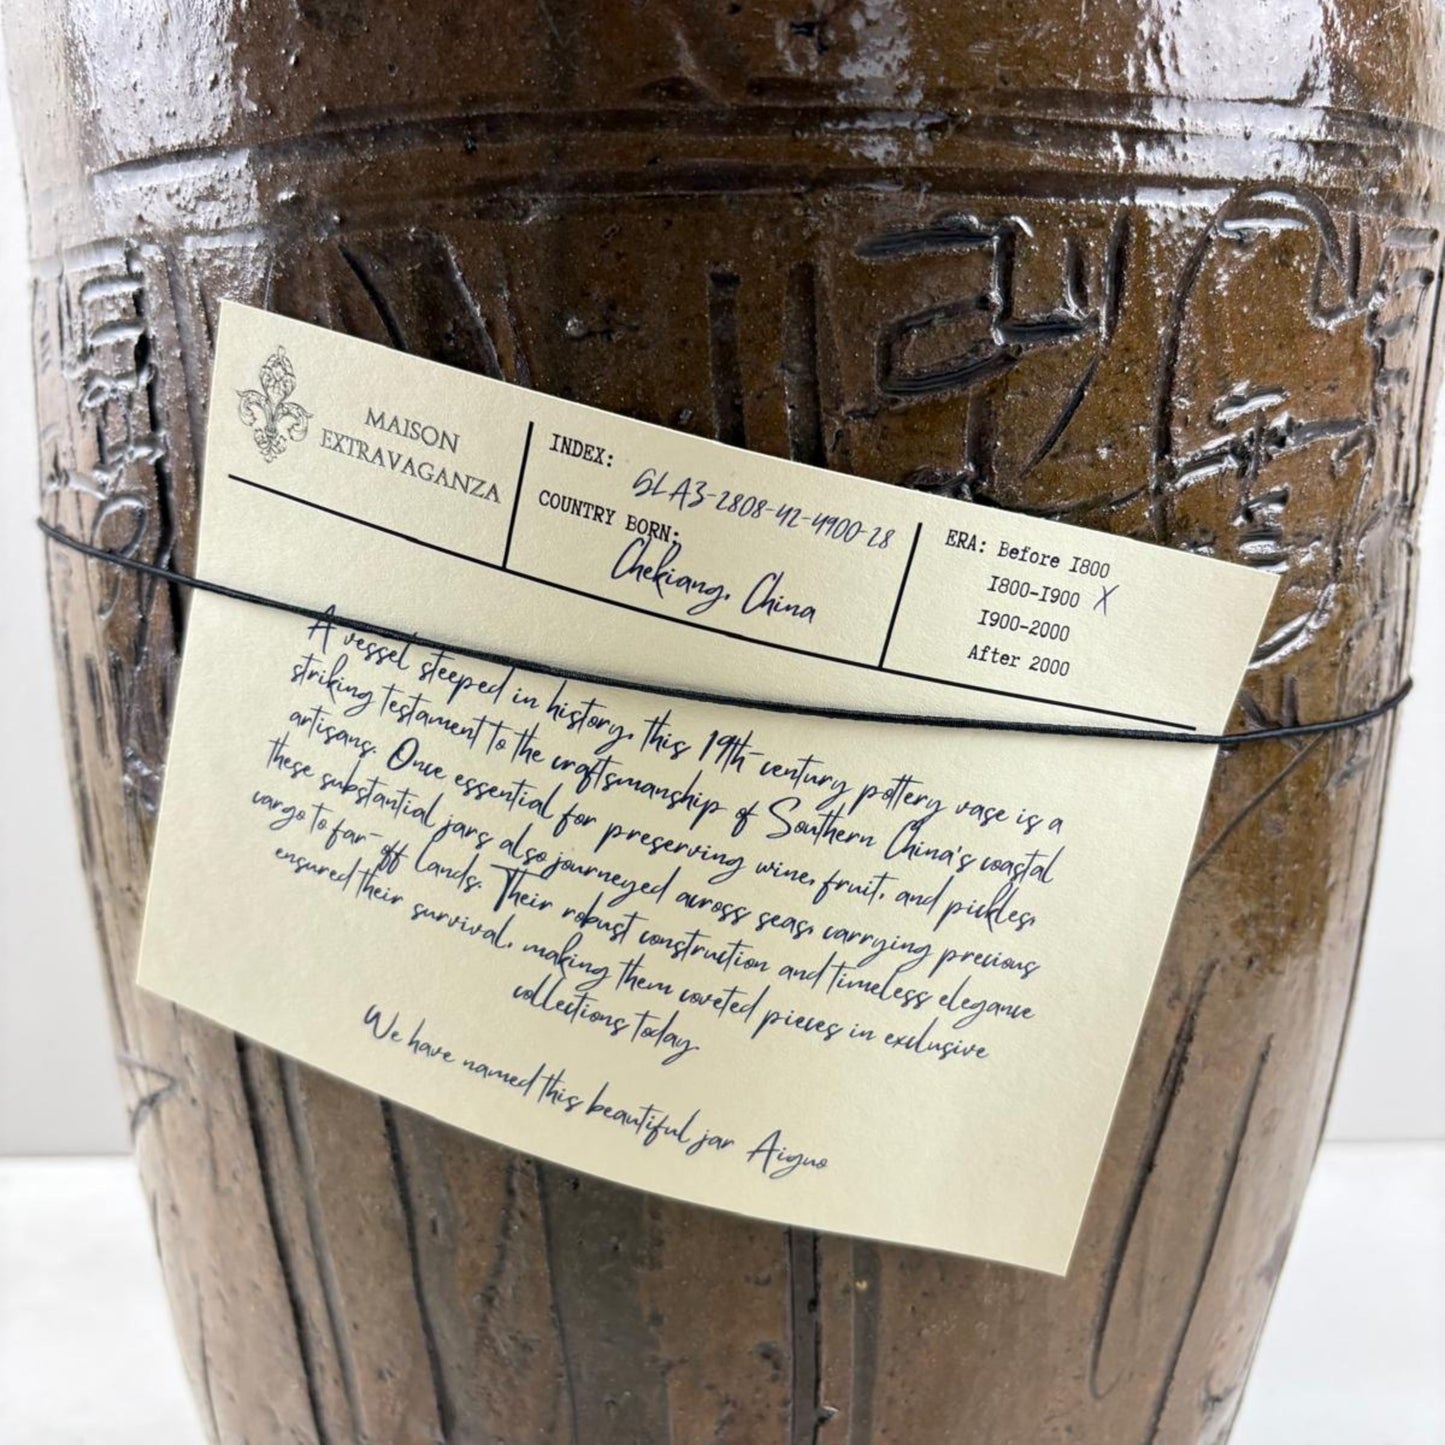 MAISON
EXTRAVAGANZA
INDEX: GLA3-2808-42-4900-28
COUNTRY BORN:
Chekiang, China
ERA: Before 1800
1800-1900 X
1900-2000
After 2000
A vessel steeped in history, this 19th-century pottery vase is a
striking testament to the craftsmanship of Southern China's coastal
artisans. Once essential for preserving wine, fruit, and pickles,
these substantial jars also journeyed across seas, carrying precious
cargo to far-off lands. Their robust construction and timeless elegance
ensured their survival, making them coveted pieces in exclusive
collections today.
We have named this beautiful jar Aiguo